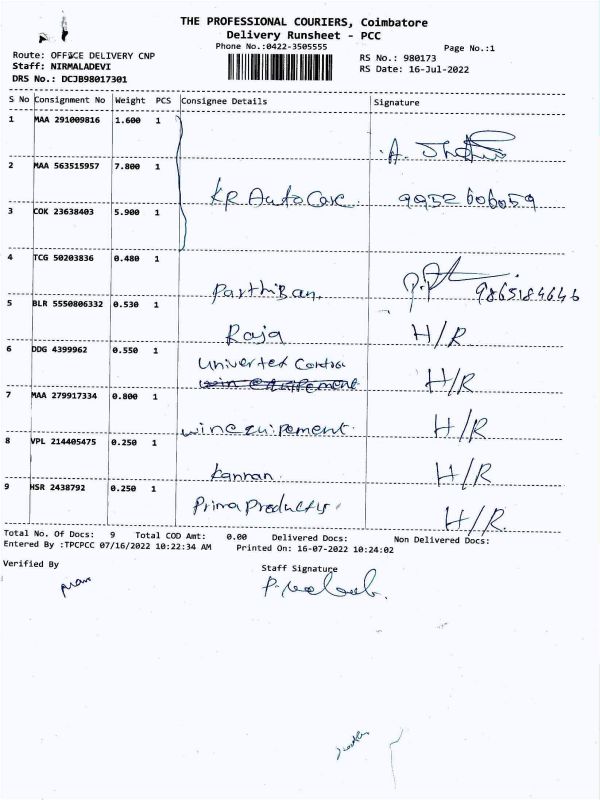 THE PROFESSIONAL COURIERS, Coimbatore
Delivery Runsheet - PCC
Phone No.:0422-3505555
Page No.:1
Route: OFFICE DELIVERY CNP
Staff: NIRMALADEVI
DRS No.: DCJB98017301
RS No.: 980173
RS Date: 16-Jul-2022
S No Consignment No Weight PCS Consignee Details Signature
1 MAA 291009816 1.600 1
2 MAA 563515957 7.800 1 KR Auto Care 9952606059
3 COK 23638403 5.900 1
4 TCG 50203836 0.480 1 Parthiban. 9865184646
5 BLR 5550806332 0.530 1 Raja H/R
6 DDG 4399962 0.550 1 H/R
7 MAA 279917334 0.800 1 winequipement. H/R
8 VPL 214405475 0.250 1 Kannan. H/R
9 HSR 2438792 0.250 1 Prima Products H/R.
Total No. Of Docs: 9 Total COD Amt: 0.00 Delivered Docs: Non Delivered Docs:
Entered By :TPCPCC 07/16/2022 10:22:34 AM Printed On: 16-07-2022 10:24:02
Verified By Staff Signature